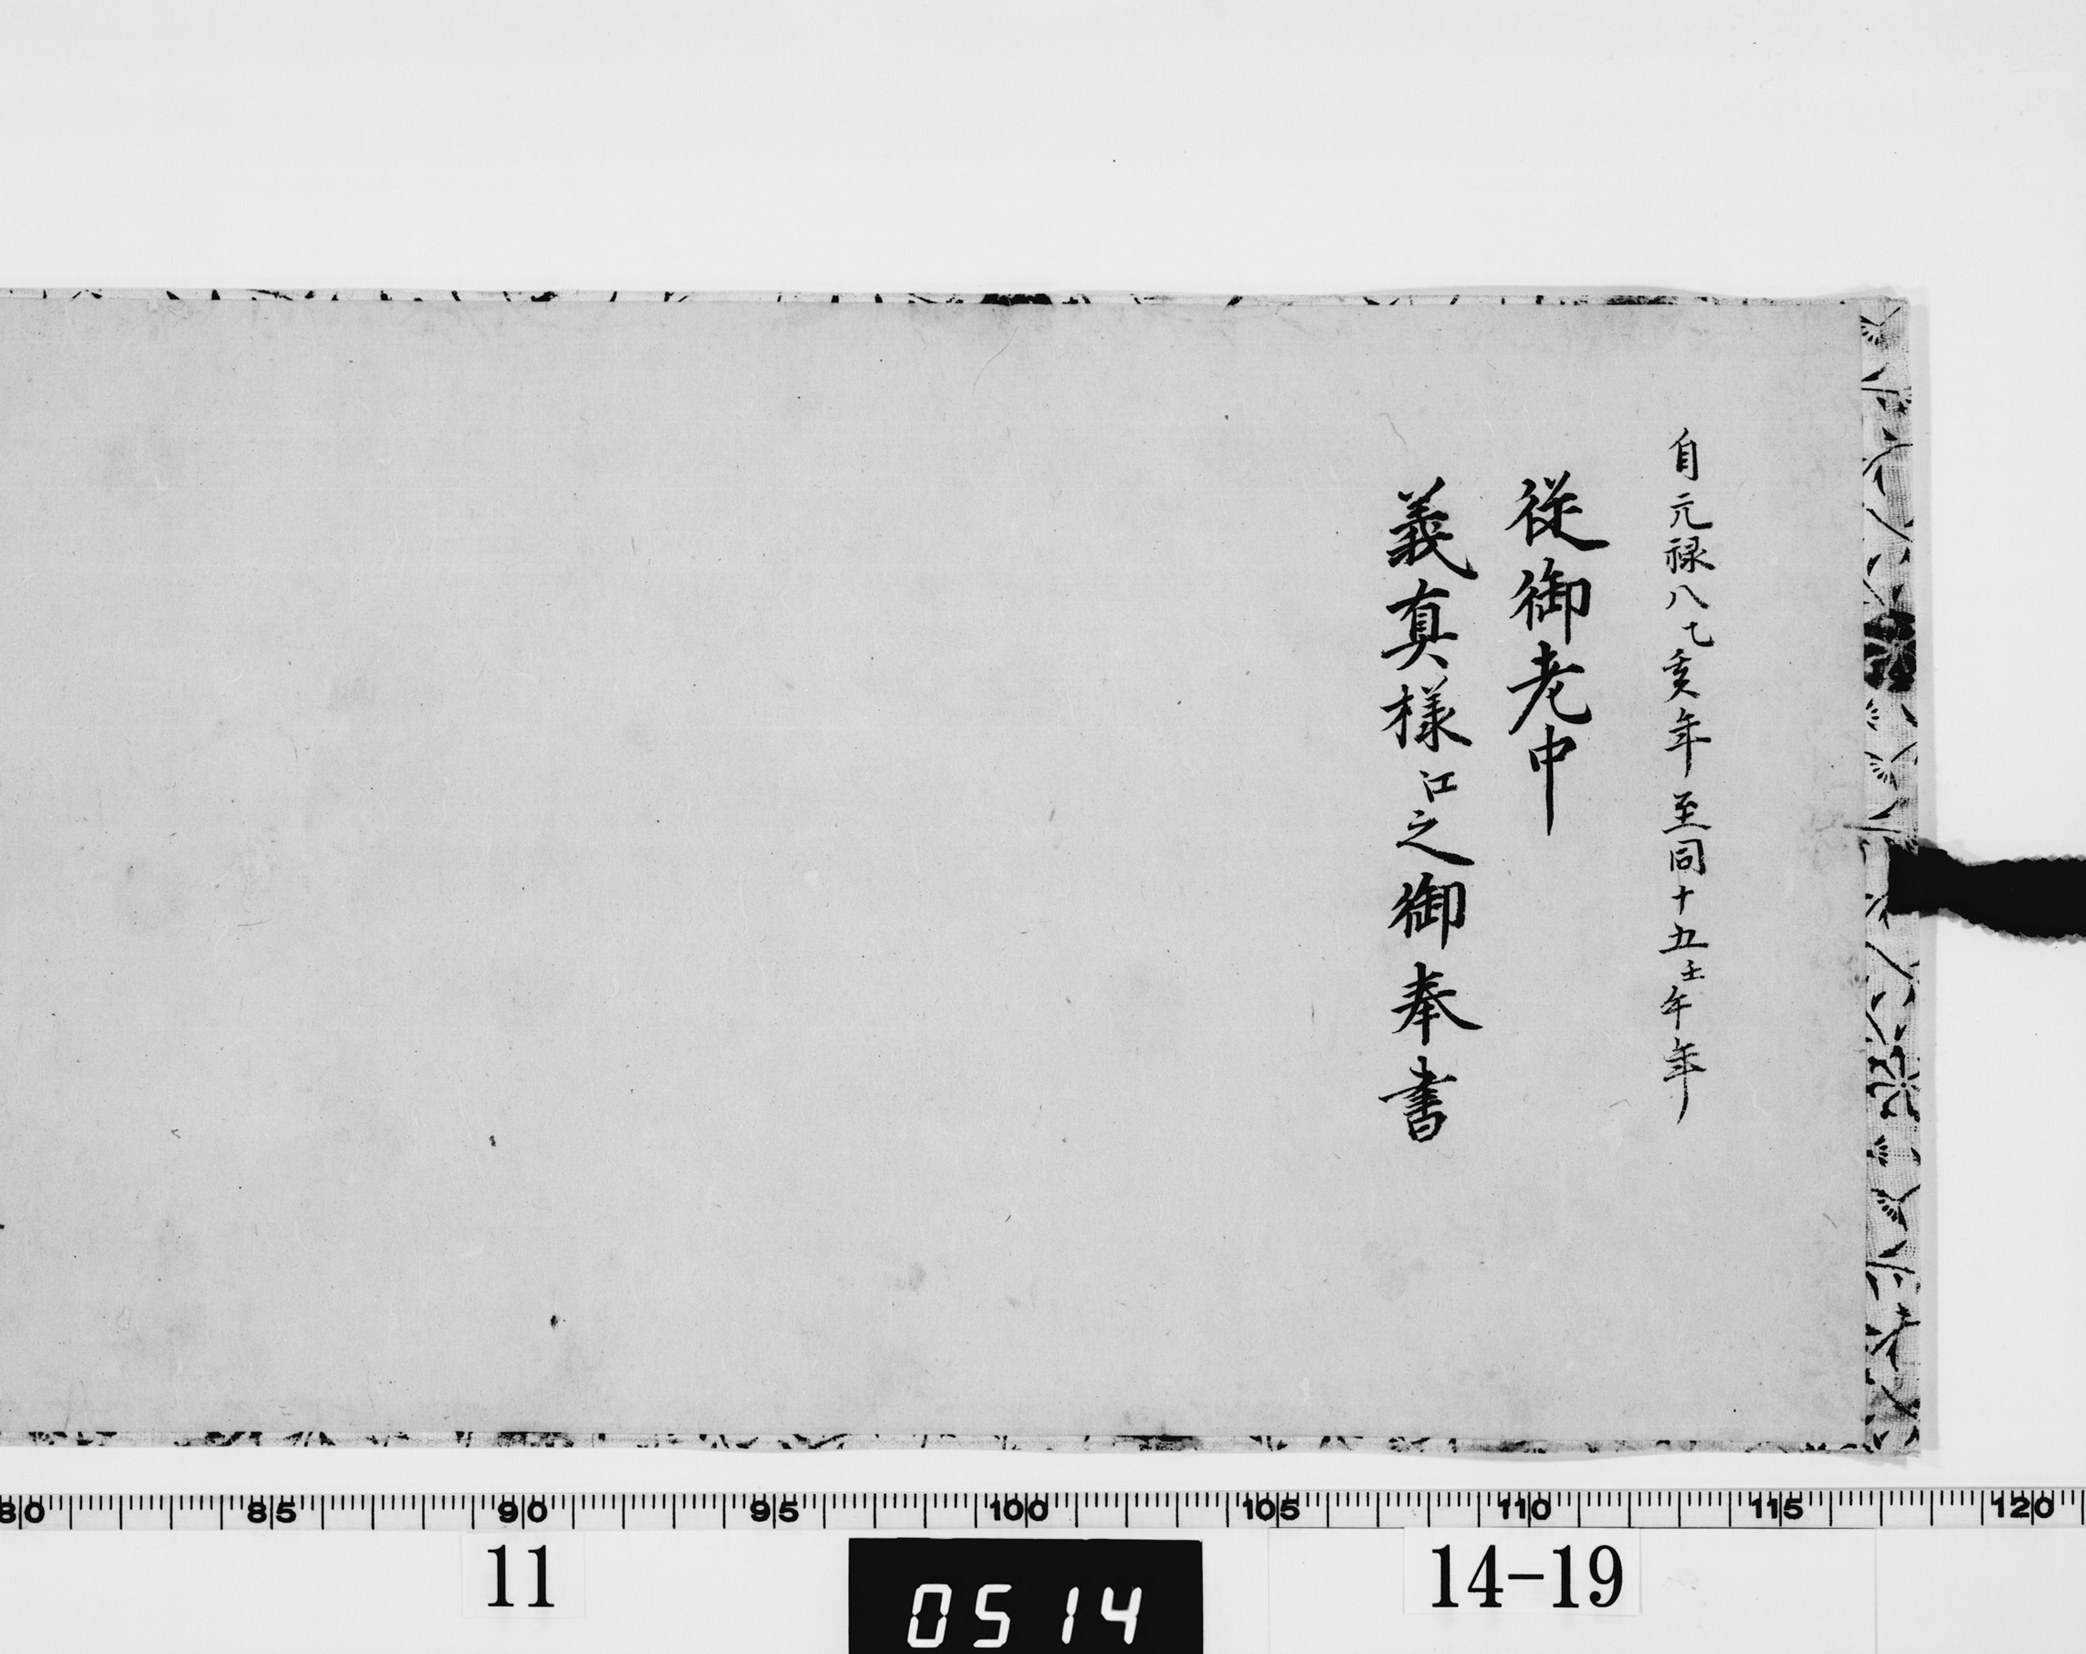 自元禄八乙亥年至同十五壬午年
従御老中
義真様江之御奉書
80 85 90 95 100 105 110 115 120
11
0514
14-19